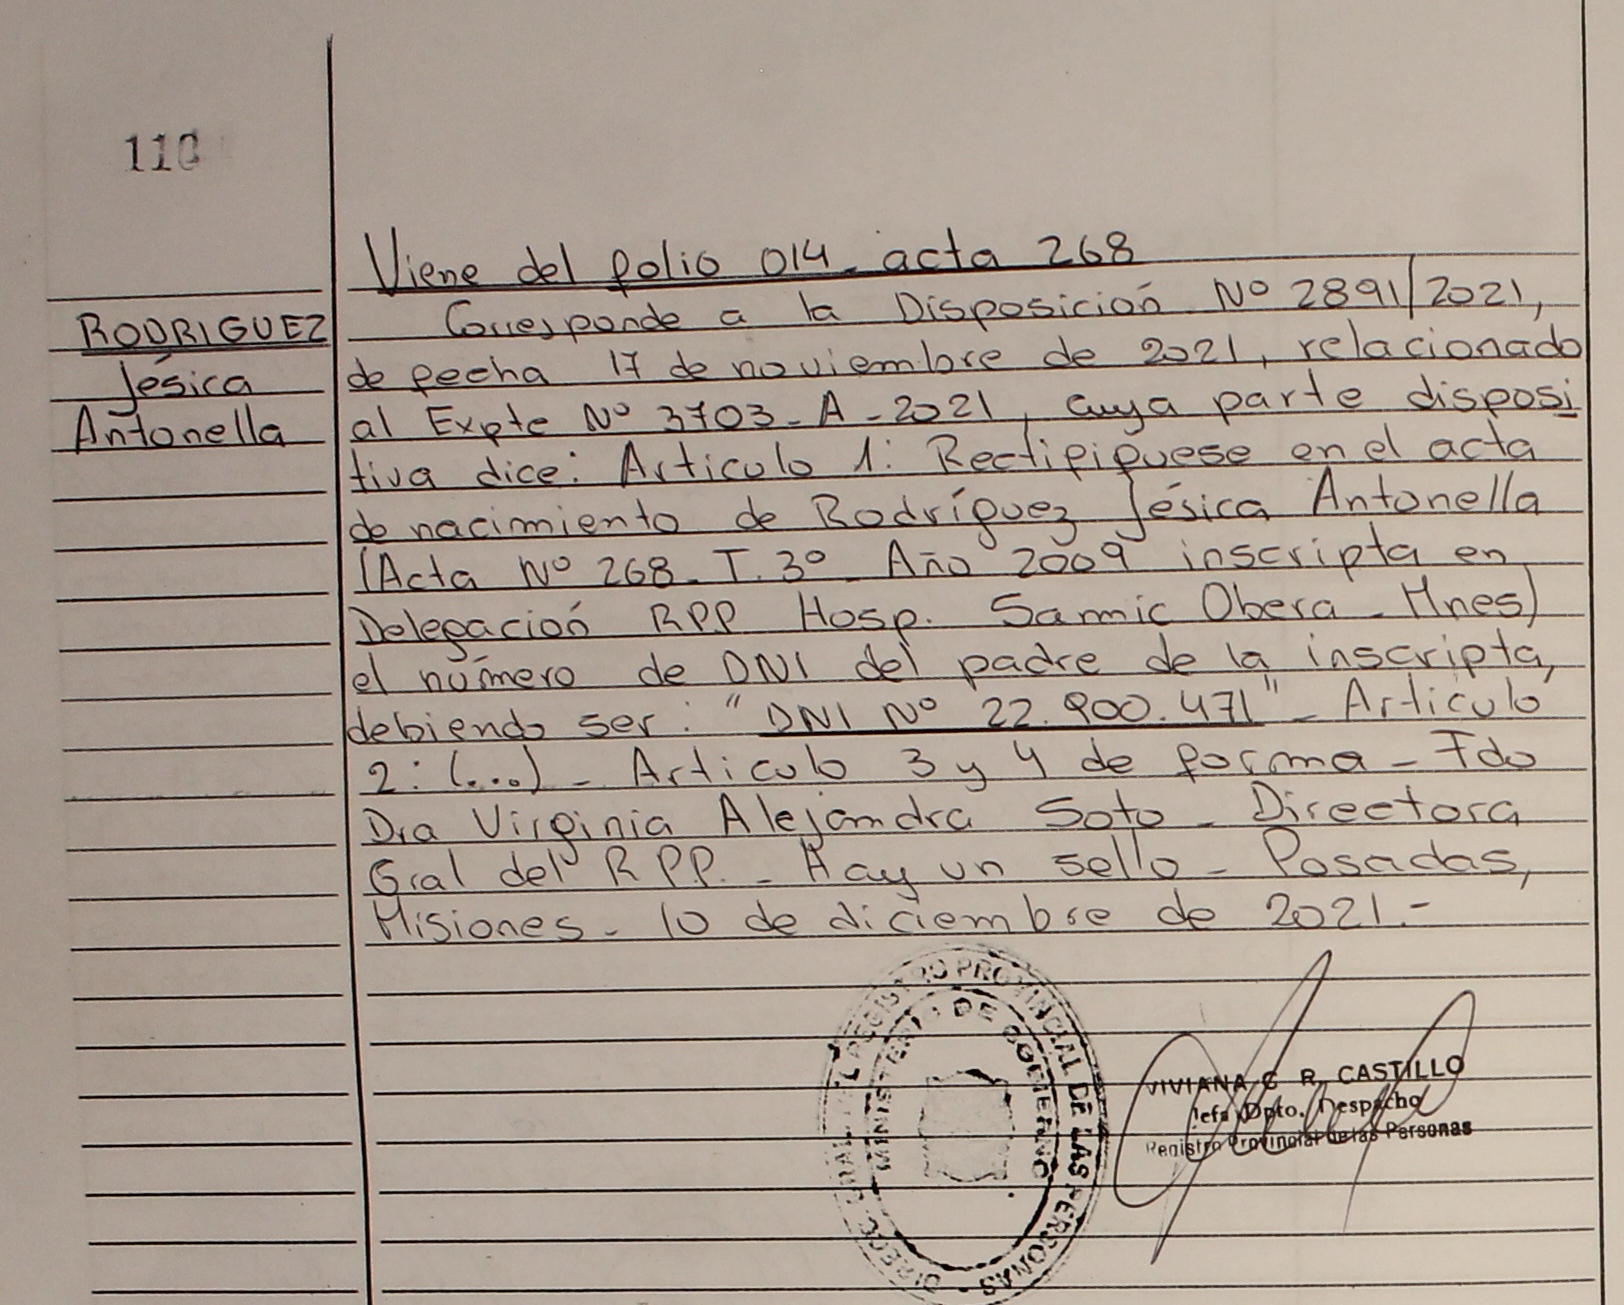 110
Viene del folio 014. acta 268
RODRIGUEZ
Jésica
Antonella
Corresponde a la Disposición Nº 2891/2021,
de fecha 17 de noviembre de 2021, relacionado
al Expte Nº 3703-A-2021, cuya parte disposi
tiva dice: Articulo 1: Rectifiquese en el acta
de nacimiento de Rodríguez Jésica Antonella
(Acta Nº 268. T. 3º Año 2009 inscripta en
Delegación RPP Hosp. Samic Obera - Mnes)
el número de DNI del padre de la inscripta,
debiendo ser: "DNI Nº 22.900.471" - Articulo
2: (...) - Articulo 3 y 4 de forma - Fdo
Dra Virginia Alejandra Soto - Directora
Gral del RPP. - Hay un sello - Posadas,
Misiones - 10 de diciembre de 2021.-
REGISTRO PROVINCIAL DE LAS PERSONAS
MINISTERIO DE GOBIERNO
VIVIANA C R. CASTILLO
Jefa Dpto. Despacho
Registro Provincial de las Personas